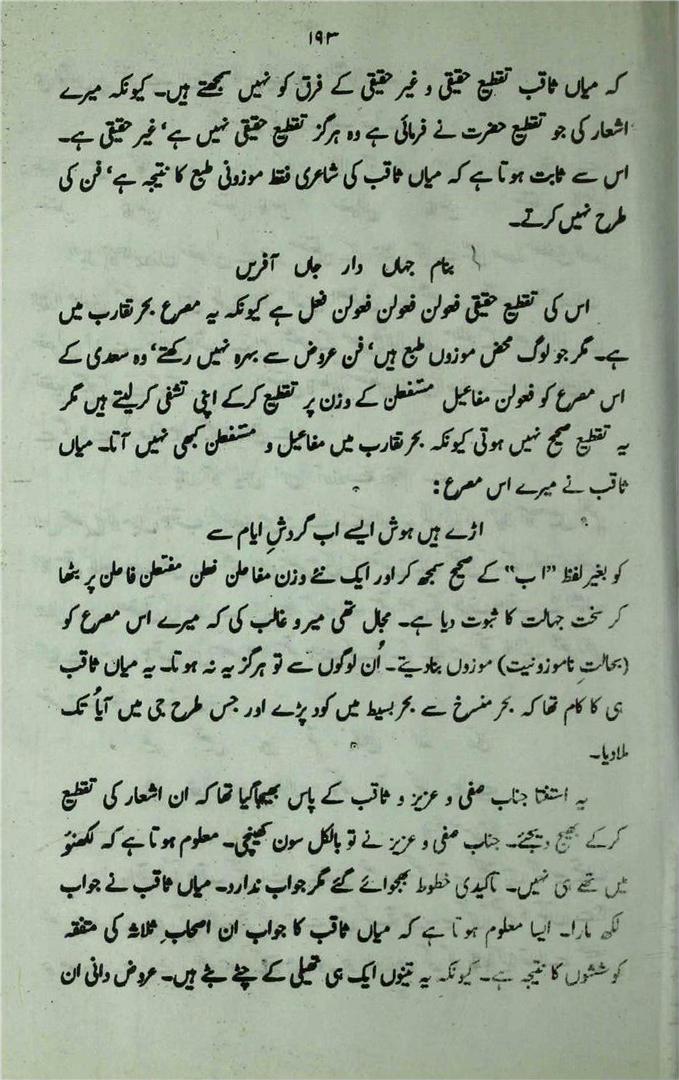 ۱۹۳
کہ میاں ثاقب تقطیع حقیقی و غیر حقیقی کے فرق کو نہیں سمجھتے ہیں۔ کیونکہ میرے
اشعار کی جو تقطیع حضرت نے فرمائی ہے وہ ہرگز تقطیع حقیقی نہیں ہے‘ غیر حقیقی ہے۔
اس سے ثابت ہوتا ہے کہ میاں ثاقب کی شاعری فقط موزونی طبع کا نتیجہ ہے‘ فن کی
طرح نہیں کرتے۔
بنام جہاں دار جاں آفریں
اس کی تقطیع حقیقی فعولن فعولن فعولن فعل ہے کیونکہ یہ مصرع بحر تقارب میں
ہے۔ مگر جو لوگ محض موزوں طبع ہیں‘ فن عروض سے بہرہ نہیں رکھتے‘ وہ سعدی کے
اس مصرع کو فعولن مفاعیل مستفعلن کے وزن پر تقطیع کرکے اپنی تشفی کرلیتے ہیں مگر
یہ تقطیع صحیح نہیں ہوتی کیونکہ بحر تقارب میں مفاعیل و مستفعلن کبھی نہیں آتا۔ میاں
ثاقب نے میرے اس مصرع :
اڑے ہیں ہوش ایسے اب گردشِ ایام سے
کو بغیر لفظ "اب" کے صحیح سمجھ کر اور ایک نئے وزن مفاعلن فعلن مفتعلن فاعلن پر بٹھا
کر سخت جہالت کا ثبوت دیا ہے۔ مجال تھی میر و غالب کی کہ میرے اس مصرع کو
(بحالتِ ناموزونیت) موزوں بنادیتے۔ اُن لوگوں سے تو ہرگز یہ نہ ہوتا۔ یہ میاں ثاقب
ہی کا کام تھا کہ بحر منسرخ سے بحر بسیط میں کود پڑے اور جس طرح جی میں آیا‘ تک
ملادیا۔
یہ استفتا جناب صفی و عزیز و ثاقب کے پاس بھیجا گیا تھا کہ ان اشعار کی تقطیع
کرکے بھیج دیجئے۔ جناب صفی و عزیز نے تو بالکل سون کھینچی۔ معلوم ہوتا ہے کہ لکھنؤ
میں تھے ہی نہیں۔ تاکیدی خطوط بھجوائے گئے مگر جواب ندارد۔ میاں ثاقب نے جواب
لکھ مارا۔ ایسا معلوم ہوتا ہے کہ میاں ثاقب کا جواب ان اصحابِ ثلاثہ کی متفقہ
کوششوں کا نتیجہ ہے۔ کیونکہ یہ تینوں ایک ہی تھیلی کے چٹے بٹے ہیں۔ عروض دانی ان